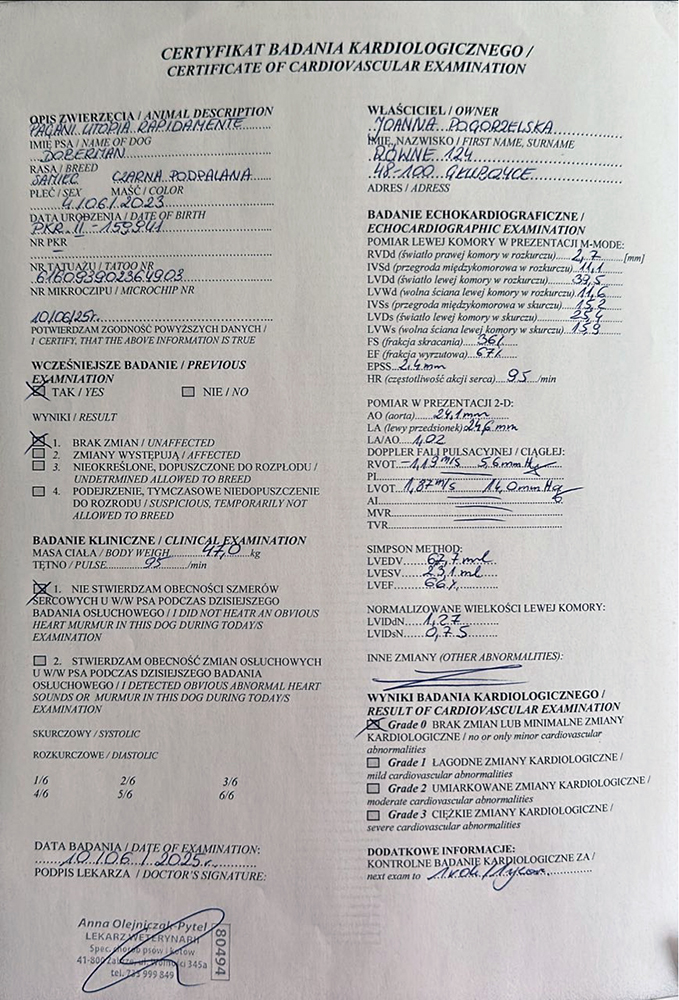 CERTYFIKAT BADANIA KARDIOLOGICZNEGO /
CERTIFICATE OF CARDIOVASCULAR EXAMINATION
OPIS ZWIERZĘCIA / ANIMAL DESCRIPTION
PAGANI UTOPIA RAPIDAMENTE
IMIĘ PSA / NAME OF DOG
DOBERMAN
RASA / BREED
SAMIEC CZARNA PODPALANA
PŁEĆ / SEX MAŚĆ / COLOR
4/06/2023
DATA URODZENIA / DATE OF BIRTH
PKR. II - 159941
NR PKR
NR TATUAŻU / TATOO NR
616093902364903
NR MIKROCZIPU / MICROCHIP NR
10/06/25r.
POTWIERDZAM ZGODNOŚĆ POWYŻSZYCH DANYCH /
I CERTIFY, THAT THE ABOVE INFORMATION IS TRUE
WCZEŚNIEJSZE BADANIE / PREVIOUS
EXAMNIATION
TAK / YES NIE / NO
WYNIKI / RESULT
1. BRAK ZMIAN / UNAFFECTED
2. ZMIANY WYSTĘPUJĄ / AFFECTED
3. NIEOKREŚLONE, DOPUSZCZONE DO ROZPŁODU /
UNDETRMINED ALLOWED TO BREED
4. PODEJRZENIE, TYMCZASOWE NIEDOPUSZCZENIE
DO ROZRODU / SUSPICIOUS, TEMPORARILY NOT
ALLOWED TO BREED
BADANIE KLINICZNE / CLINICAL EXAMINATION
MASA CIAŁA / BODY WEIGH 47,0 kg
TĘTNO / PULSE 95 /min
1. NIE STWIERDZAM OBECNOŚCI SZMERÓW
SERCOWYCH U W/W PSA PODCZAS DZISIEJSZEGO
BADANIA OSŁUCHOWEGO / I DID NOT HEATR AN OBVIOUS
HEART MURMUR IN THIS DOG DURING TODAY/S
EXAMINATION
2. STWIERDZAM OBECNOŚĆ ZMIAN OSŁUCHOWYCH
U W/W PSA PODCZAS DZISIEJSZEGO BADANIA
OSŁUCHOWEGO / I DETECTED OBVIOUS ABNORMAL HEART
SOUNDS OR MURMUR IN THIS DOG DURING TODAY/S
EXAMINATION
SKURCZOWY / SYSTOLIC
ROZKURCZOWE / DIASTOLIC
1/6 2/6 3/6
4/6 5/6 6/6
DATA BADANIA / DATE OF EXAMINATION:
10./06./2025r.
PODPIS LEKARZA / DOCTOR'S SIGNATURE:
Anna Olejniczak-Pytel
LEKARZ WETERYNARII
Spec. chorób psów i kotów
41-800 Zabrze, ul. Wolności 345a
tel. 735 999 849
80494
WŁAŚCICIEL / OWNER
JOANNA POGORZELSKA
IMIĘ, NAZWISKO / FIRST NAME, SURNAME
RÓWNE 124
48-100 GŁUBCZYCE
ADRES / ADRESS
BADANIE ECHOKARDIOGRAFICZNE /
ECHOCARDIOGRAPHIC EXAMINATION
POMIAR LEWEJ KOMORY W PREZENTACJI M-MODE:
RVDd (światło prawej komory w rozkurczu) 2,7 [mm]
IVSd (przegroda międzykomorowa w rozkurczu) 11,1
LVDd (światło lewej komory w rozkurczu) 39,5
LVWd (wolna ściana lewej komory w rozkurczu) 11,6
IVSs (przegroda międzykomorowa w skurczu) 15,2
LVDs (światło lewej komory w skurczu) 25,4
LVWs (wolna ściana lewej komory w skurczu) 15,9
FS (frakcja skracania) 36%
EF (frakcja wyrzutowa) 67%
EPSS 2,4 mm
HR (częstotliwość akcji serca) 95 /min
POMIAR W PREZENTACJI 2-D:
AO (aorta) 24,1mm
LA (lewy przedsionek) 24,6 mm
LA/AO 1,02
DOPPLER FALI PULSACYJNEJ / CIĄGŁEJ:
RVOT -1,19 m/s 5,6 mmHg
PI
LVOT 1,87 m/s 14,0 mmHg
AI
MVR
TVR
SIMPSON METHOD:
LVEDV 67,7 ml
LVESV 23,1 ml
LVEF 66%
NORMALIZOWANE WIELKOŚCI LEWEJ KOMORY:
LVIDdN 1,27
LVIDsN 0,75
INNE ZMIANY (OTHER ABNORMALITIES):
WYNIKI BADANIA KARDIOLOGICZNEGO /
RESULT OF CARDIOVASCULAR EXAMINATION
Grade 0 BRAK ZMIAN LUB MINIMALNE ZMIANY
KARDIOLOGICZNE / no or only minor cardiovascular
abnormalities
Grade 1 ŁAGODNE ZMIANY KARDIOLOGICZNE /
mild cardiovascular abnormalities
Grade 2 UMIARKOWANE ZMIANY KARDIOLOGICZNE /
moderate cardiovascular abnormalities
Grade 3 CIĘŻKIE ZMIANY KARDIOLOGICZNE /
severe cardiovascular abnormalities
DODATKOWE INFORMACJE:
KONTROLNE BADANIE KARDIOLOGICZNE ZA /
next exam to 1 rok /